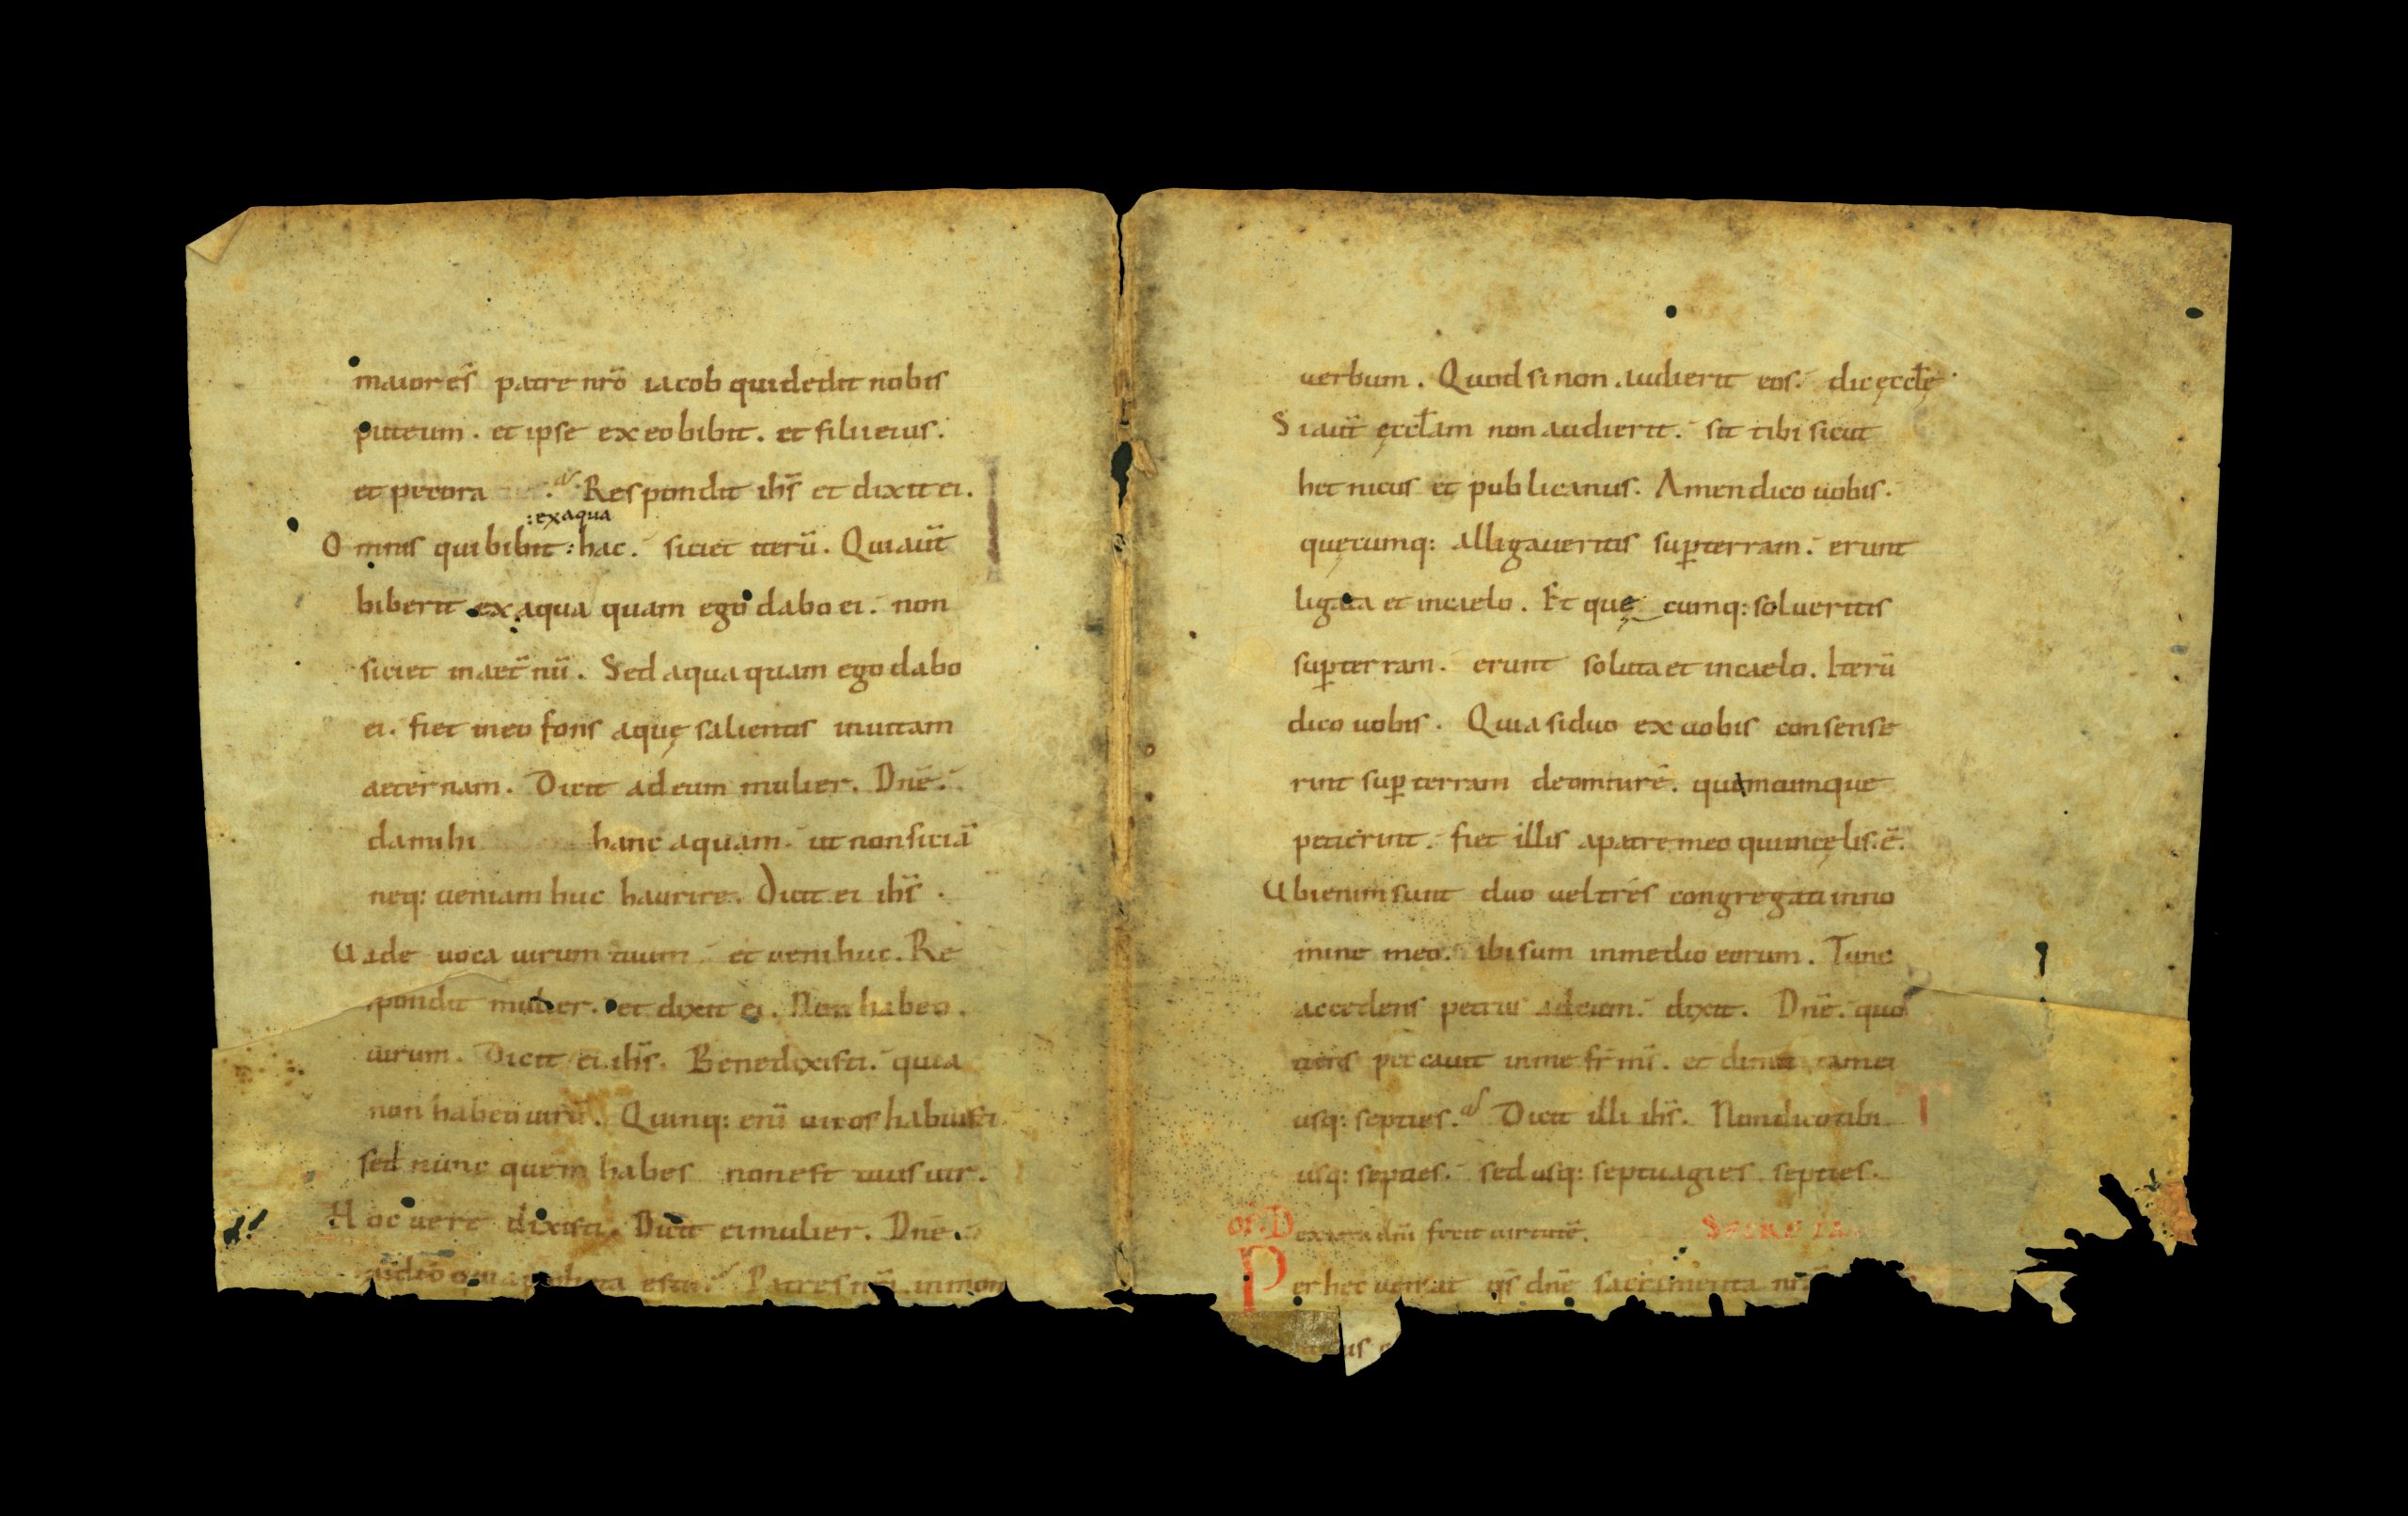 maiores patre nr̄o iacob qui dedit nobis
puteum. et ipse ex eo bibit. et filii eius.
et pecora Respondit ih̄s et dixit ei.
:ex aqua
Omnis qui bibit : hac. sitiet iterū. Qui aut̄
biberit ex aqua quam ego dabo ei. non
sitiet in aet̄nū. Sed aqua quam ego dabo
ei. fiet in eo fons aquę salientis in uitam
aeternam. Dicit ad eum mulier. Dn̄e.
da mihi hanc aquam. ut non siciā
neq: ueniam huc haurire. Dicit ei ih̄s.
Uade uoca uirum tuum et ueni huc. Re
spondit mulier. et dixit ei. Non habeo.
uirum. Dicit ei ih̄s. Bene dixisti. quia
non habeo uirū. Quinq: enī uiros habuisti
sed nunc quem habes non est tuus uir.
Hoc uere dixisti. Dicit ei mulier. Dn̄e.
Patres nr̄i in mon
uerbum. Quod si non audierit eos. dic ęccl̄ę.
Si aut̄ ęccl̄am non audierit. sit tibi sicut
hetnicus et publicanus. Amen dico uobis.
quęcumq: alligaueritis sup̄ terram. erunt
ligata et in caelo. Et quę cumq: solueritis
sup̄ terram. erunt soluta et in caelo. Iterū
dico uobis. Quia si duo ex uobis consense
rint sup̄ terram de omni rē. quamcumque
petierint. fiet illis a patre meo qui in cęlis.ē.
Ubi enim sunt duo uel tres congregati in no
mine meo. ibi sum in medio eorum. Tunc
accedens petrus ad eum. dixit. Dn̄e. quo
tiens peccauit in me fr̄ mī. et dimittam ei
usq: septies. Dicit illi ih̄s. Non dico tibi
usq: septies. sed usq: septuagies septies.
of. Dextera dnī fecit uirtutē. Secreta
Per hec ueniat qs̄ dn̄e sacramenta nr̄ę